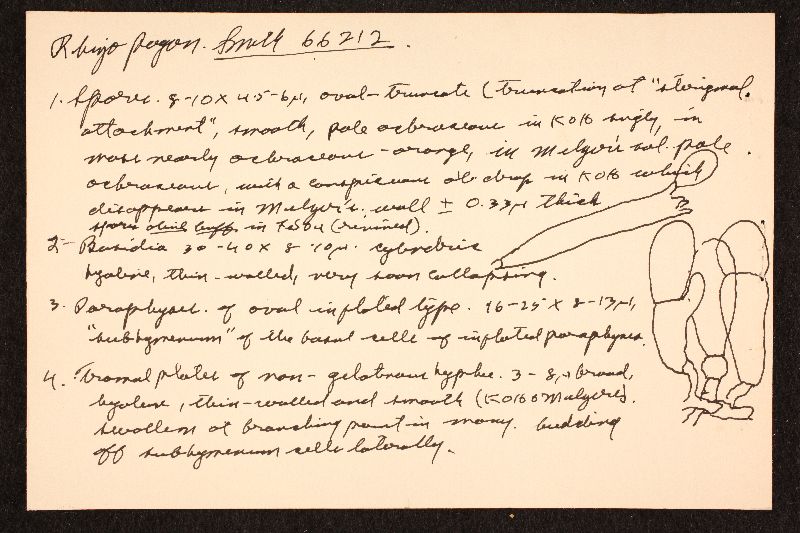 Rhizopogon. Smith 66212.
1. Spores. 8-10 x 4.5-6µ, oval-truncate (truncation at "sterigmal
attachment", smooth, pale ochraceous in KOH singly, in
mass nearly ochraceous-orange, in Melzer's sol. pale
ochraceous, with a conspicuous oil drop in KOH which
disappears in Melzer's. wall ± 0.33µ thick
spores olive buff in FeSO4 (revived).
2- Basidia 30-40 x 8-10µ. cylindric
hyaline, thin-walled, very soon collapsing.
3. Paraphyses. of oval inflated type. 16-25 x 8-13µ,
"subhymenium" of the basal cells of inflated paraphyses.
4. Tramal plates of non-gelatinous hyphae. 3-8µ broad,
hyaline, thin-walled and smooth (KOH & Melzer's).
swollen at branching point in many. budding
off subhymenium cells laterally.